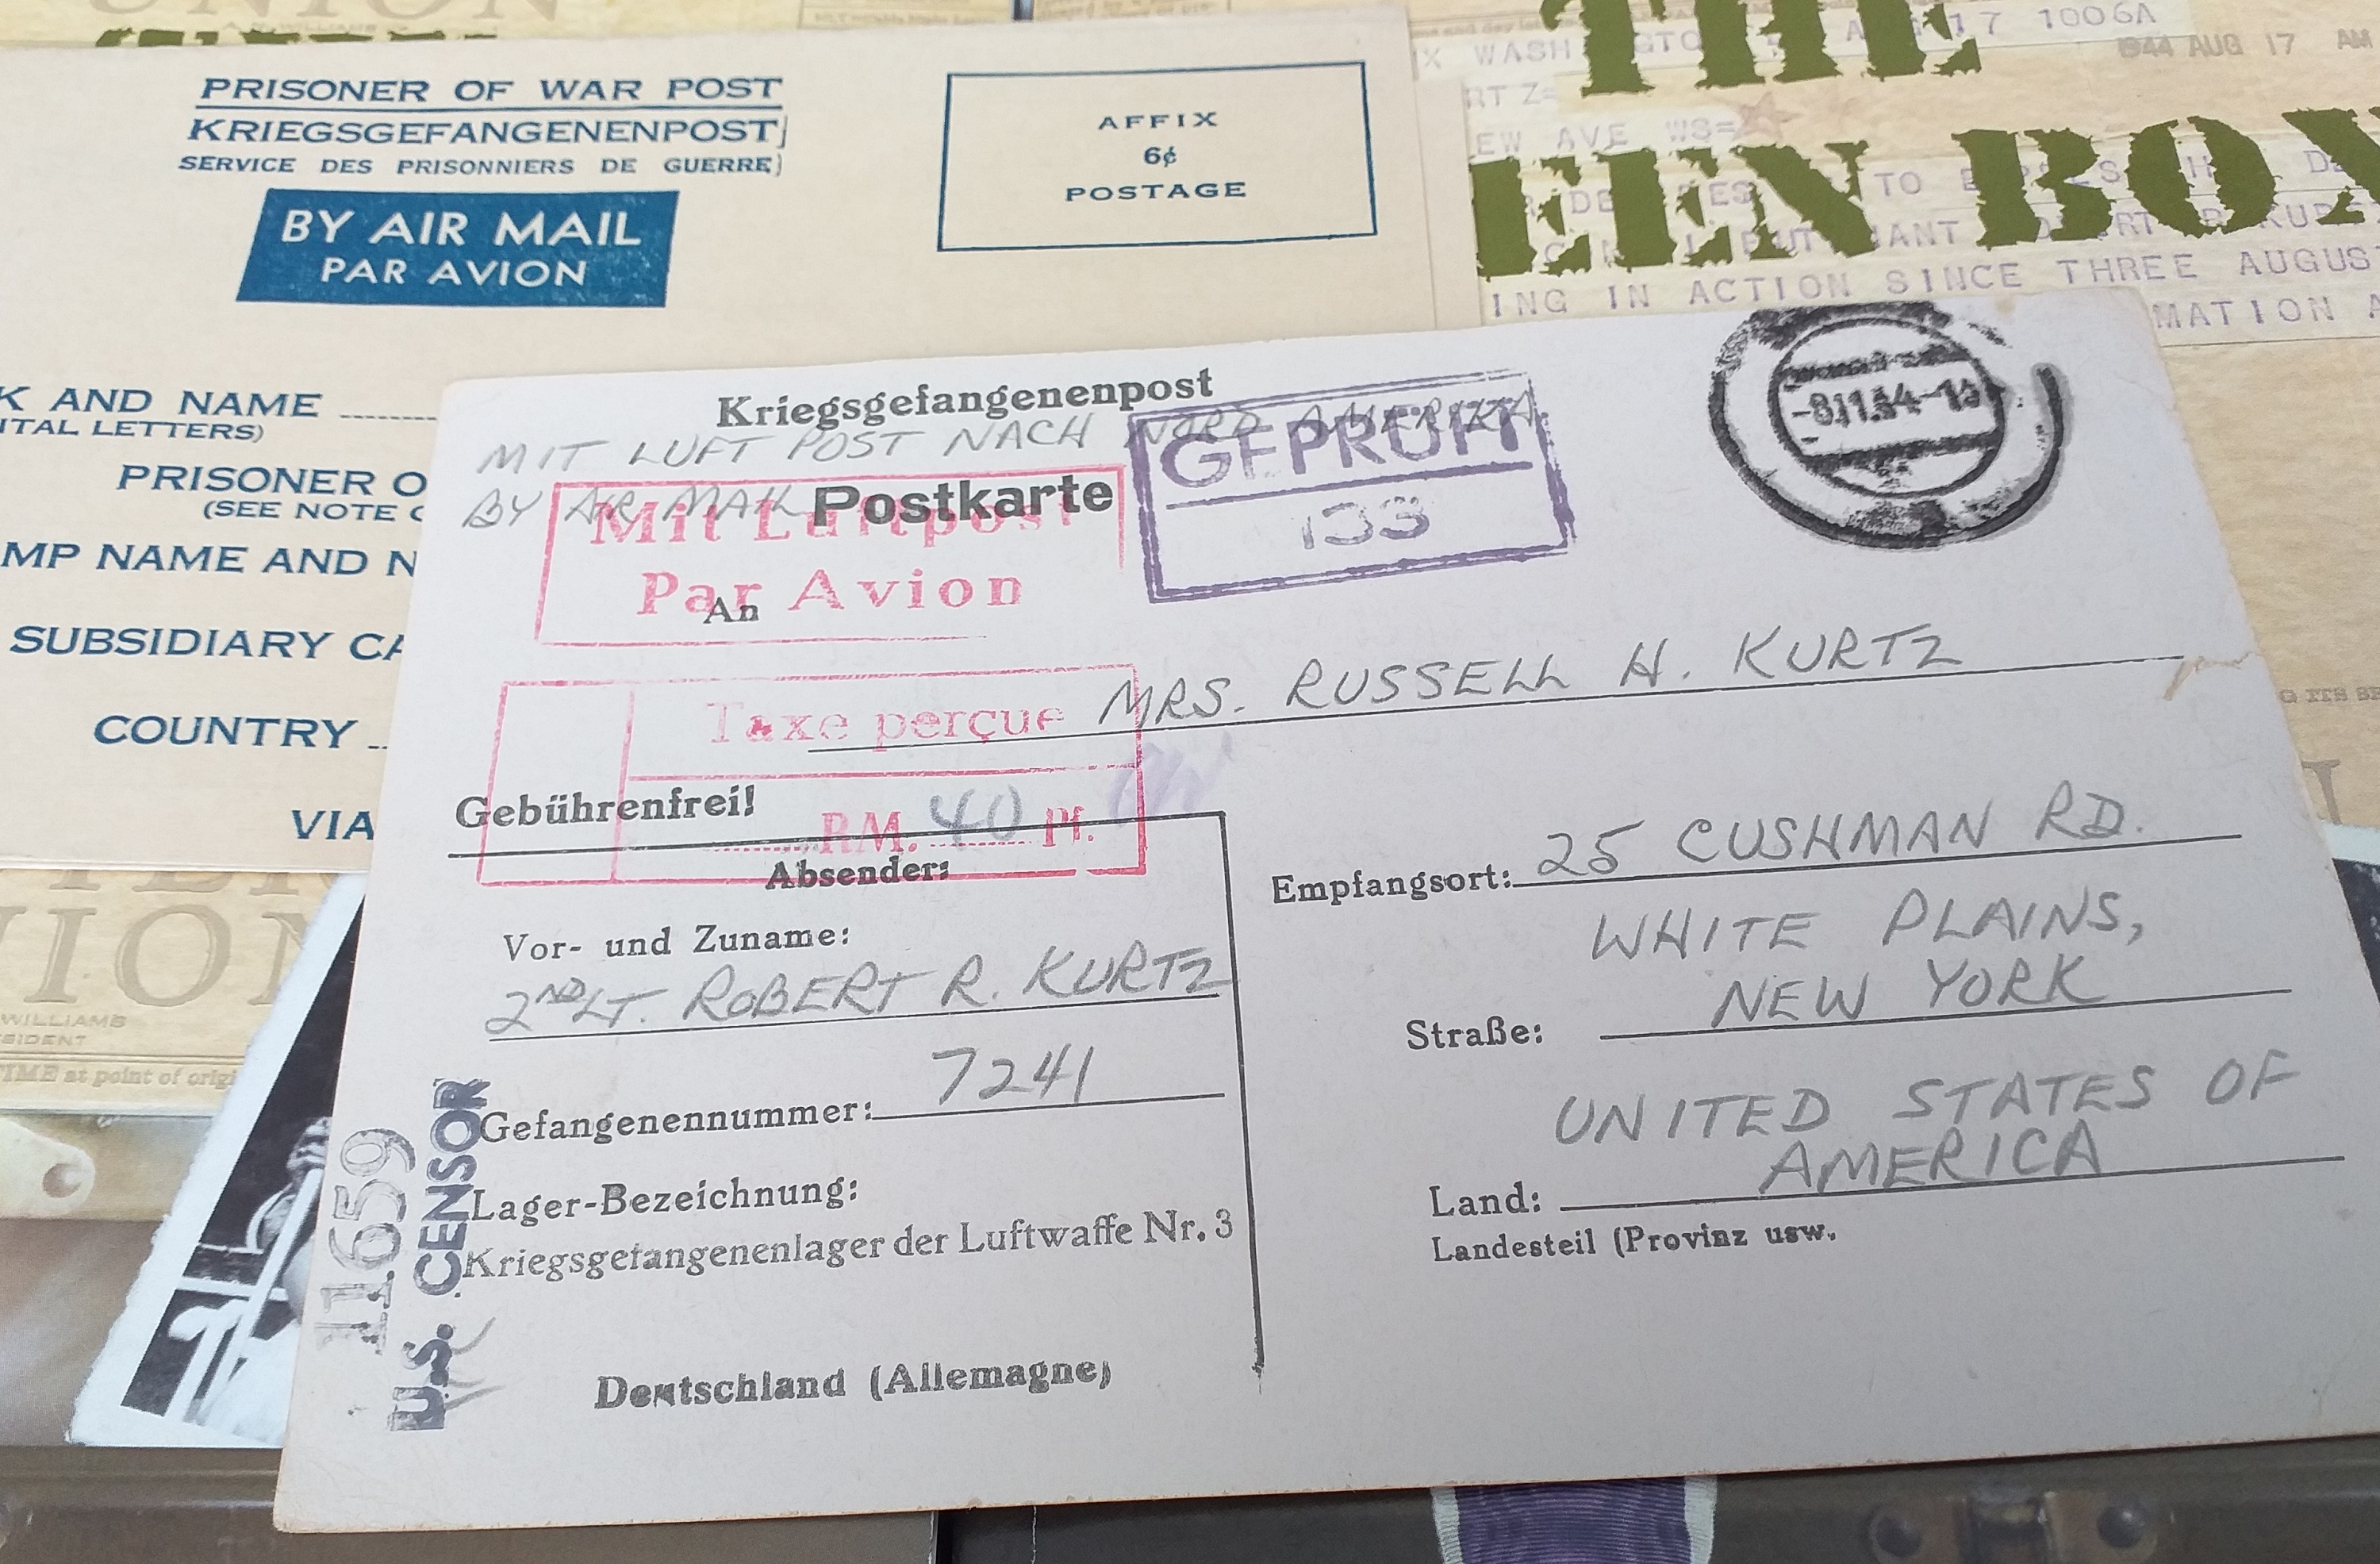 UNION
PRISONER OF WAR POST
KRIEGSGEFANGENENPOST
SERVICE DES PRISONNIERS DE GUERRE)
BY AIR MAIL
PAR AVION
AFFIX
6¢
POSTAGE
K AND NAME
ITAL LETTERS)
PRISONER O
(SEE NOTE
MP NAME AND N
SUBSIDIARY CA
COUNTRY
VIA
THE
EEN BOX
17 1006A
1944 AUG 17 AM
EW AVE WS=
ING IN ACTION SINCE THREE AUGUS
MATION A
Kriegsgefangenenpost
MIT LUFT POST NACH NORD AMERIKA
BY AIR MAIL
Postkarte
Mit Luftpost
Par Avion
An
GEPRÜFT
133
MRS. RUSSELL H. KURTZ
Taxe perçue
RM. 40 Pf.
Gebührenfrei!
Absender:
Vor- und Zuname:
2ND LT. ROBERT R. KURTZ
Gefangenennummer: 7241
Lager-Bezeichnung:
Kriegsgefangenenlager der Luftwaffe Nr. 3
Deutschland (Allemagne)
Empfangsort: 25 CUSHMAN RD.
WHITE PLAINS,
Straße: NEW YORK
UNITED STATES OF
Land: AMERICA
Landesteil (Provinz usw.
11659
U.S. CENSOR
ION
WILLIAMS
SIDENT
TIME at point of origi